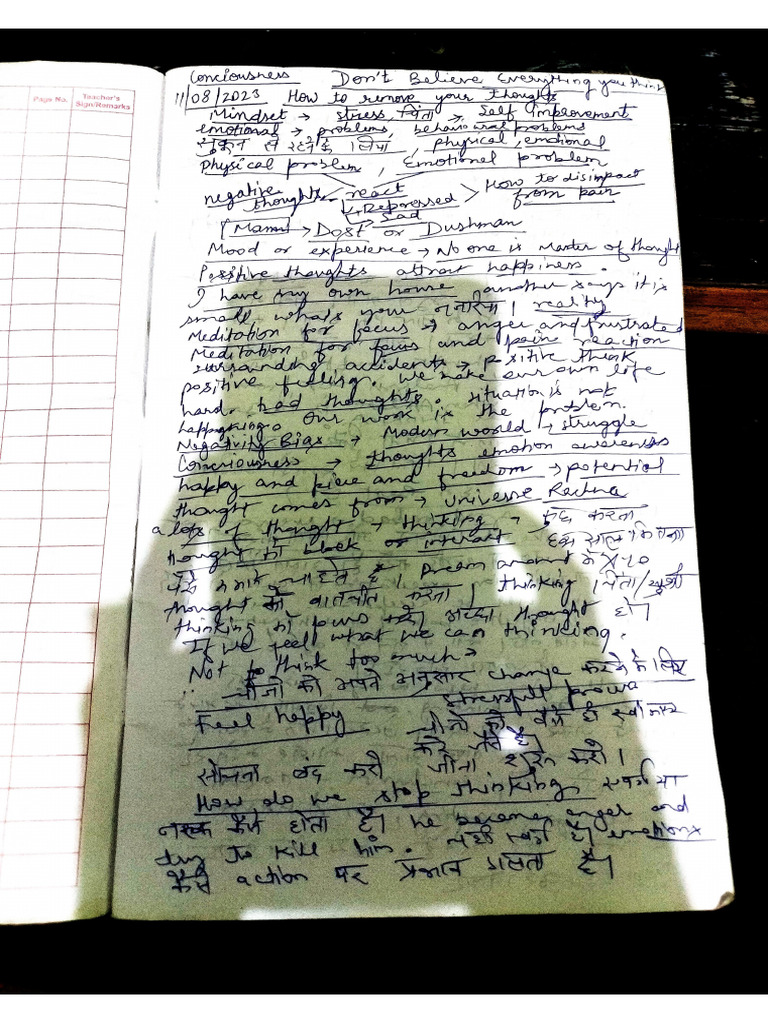 Page No.
Teacher's
Sign/Remarks
Conciousness Don't Believe Everything you think
11/08/2023 How to remove your thoughts
Mindset → stress चिंता → Self Improvement
emotional → problems, behavioural problems
सुकून से रहने के लिए, physical, emotional
Physical problem, Emotional problem
negative thoughts react
Repressed
Sad
How to disimpact
from pain
(Mann) → Dost or Dushman
Mood or experience → No one is Master of thought
Positive thoughts attract happiness.
I have my own house another says it is
small whats your नजरिया। reality
Meditation for focus → anger and frustrated
Meditation for focus and pain reaction
surrounding accidents → positive think
positive feeling. We make our own life
hard. bad thoughts. situation is not
happening. Our work is the problem.
Negativity Bias → Modern world → struggle
Conciousness → thoughts emotion awareness
happy and piece and freedom → potential
thought comes from → Universe
a lots of thought → thinking → करना
thought को block or
चाहते है। Dream amount के X10
thought को बातचीत करना। thinking
thinking को अच्छा thought हो।
If we feel what we can thinking.
Not to think too much →
चीजो को अपने अनुसार change करने के लिए
stressfull
Feel happy चीजो को वैसे ही स्वीकार
करो जैसे है।
सोचना बंद करो जीना शुरू करो।
How do we stop thinking स्वर्ग या
नरक कैसे होता है। he becomes anger and
try to kill him. यही स्वर्ग है। emotions
कैसे action पर प्रभाव डालता है।